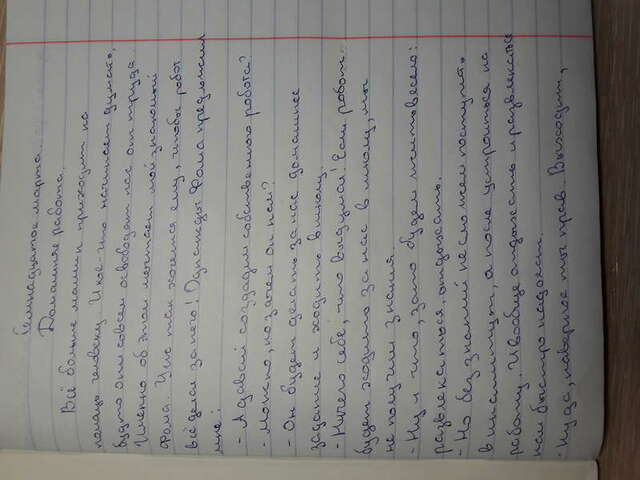 Семнадцатое марта.
Домашняя работа.
Всё больше машин приходит на
помощь человеку. И кое-кто начинает думать,
будто они совсем освободят нас от труда.
Именно об этом мечтает мой знакомый
Фома. Уж так хочется ему, чтобы робот
всё делал за него! Однажды Фома предложил
мне:
- А давай создадим собственного робота?
- Можно, но зачем он нам?
- Он будет делать за нас домашнее
задание и ходить в школу.
- Ничего себе, что выдумал! Если робот
будет ходить за нас в школу, мы
не получим знания.
- Ну и что, зато будем жить весело:
развлекаться, отдыхать.
- Но без знаний не сможем поступить
в институт, а после устроиться на
работу. И вообще отдыхать и развлекаться
нам быстро надоест.
- Ну да, наверное ты прав. Выходит,